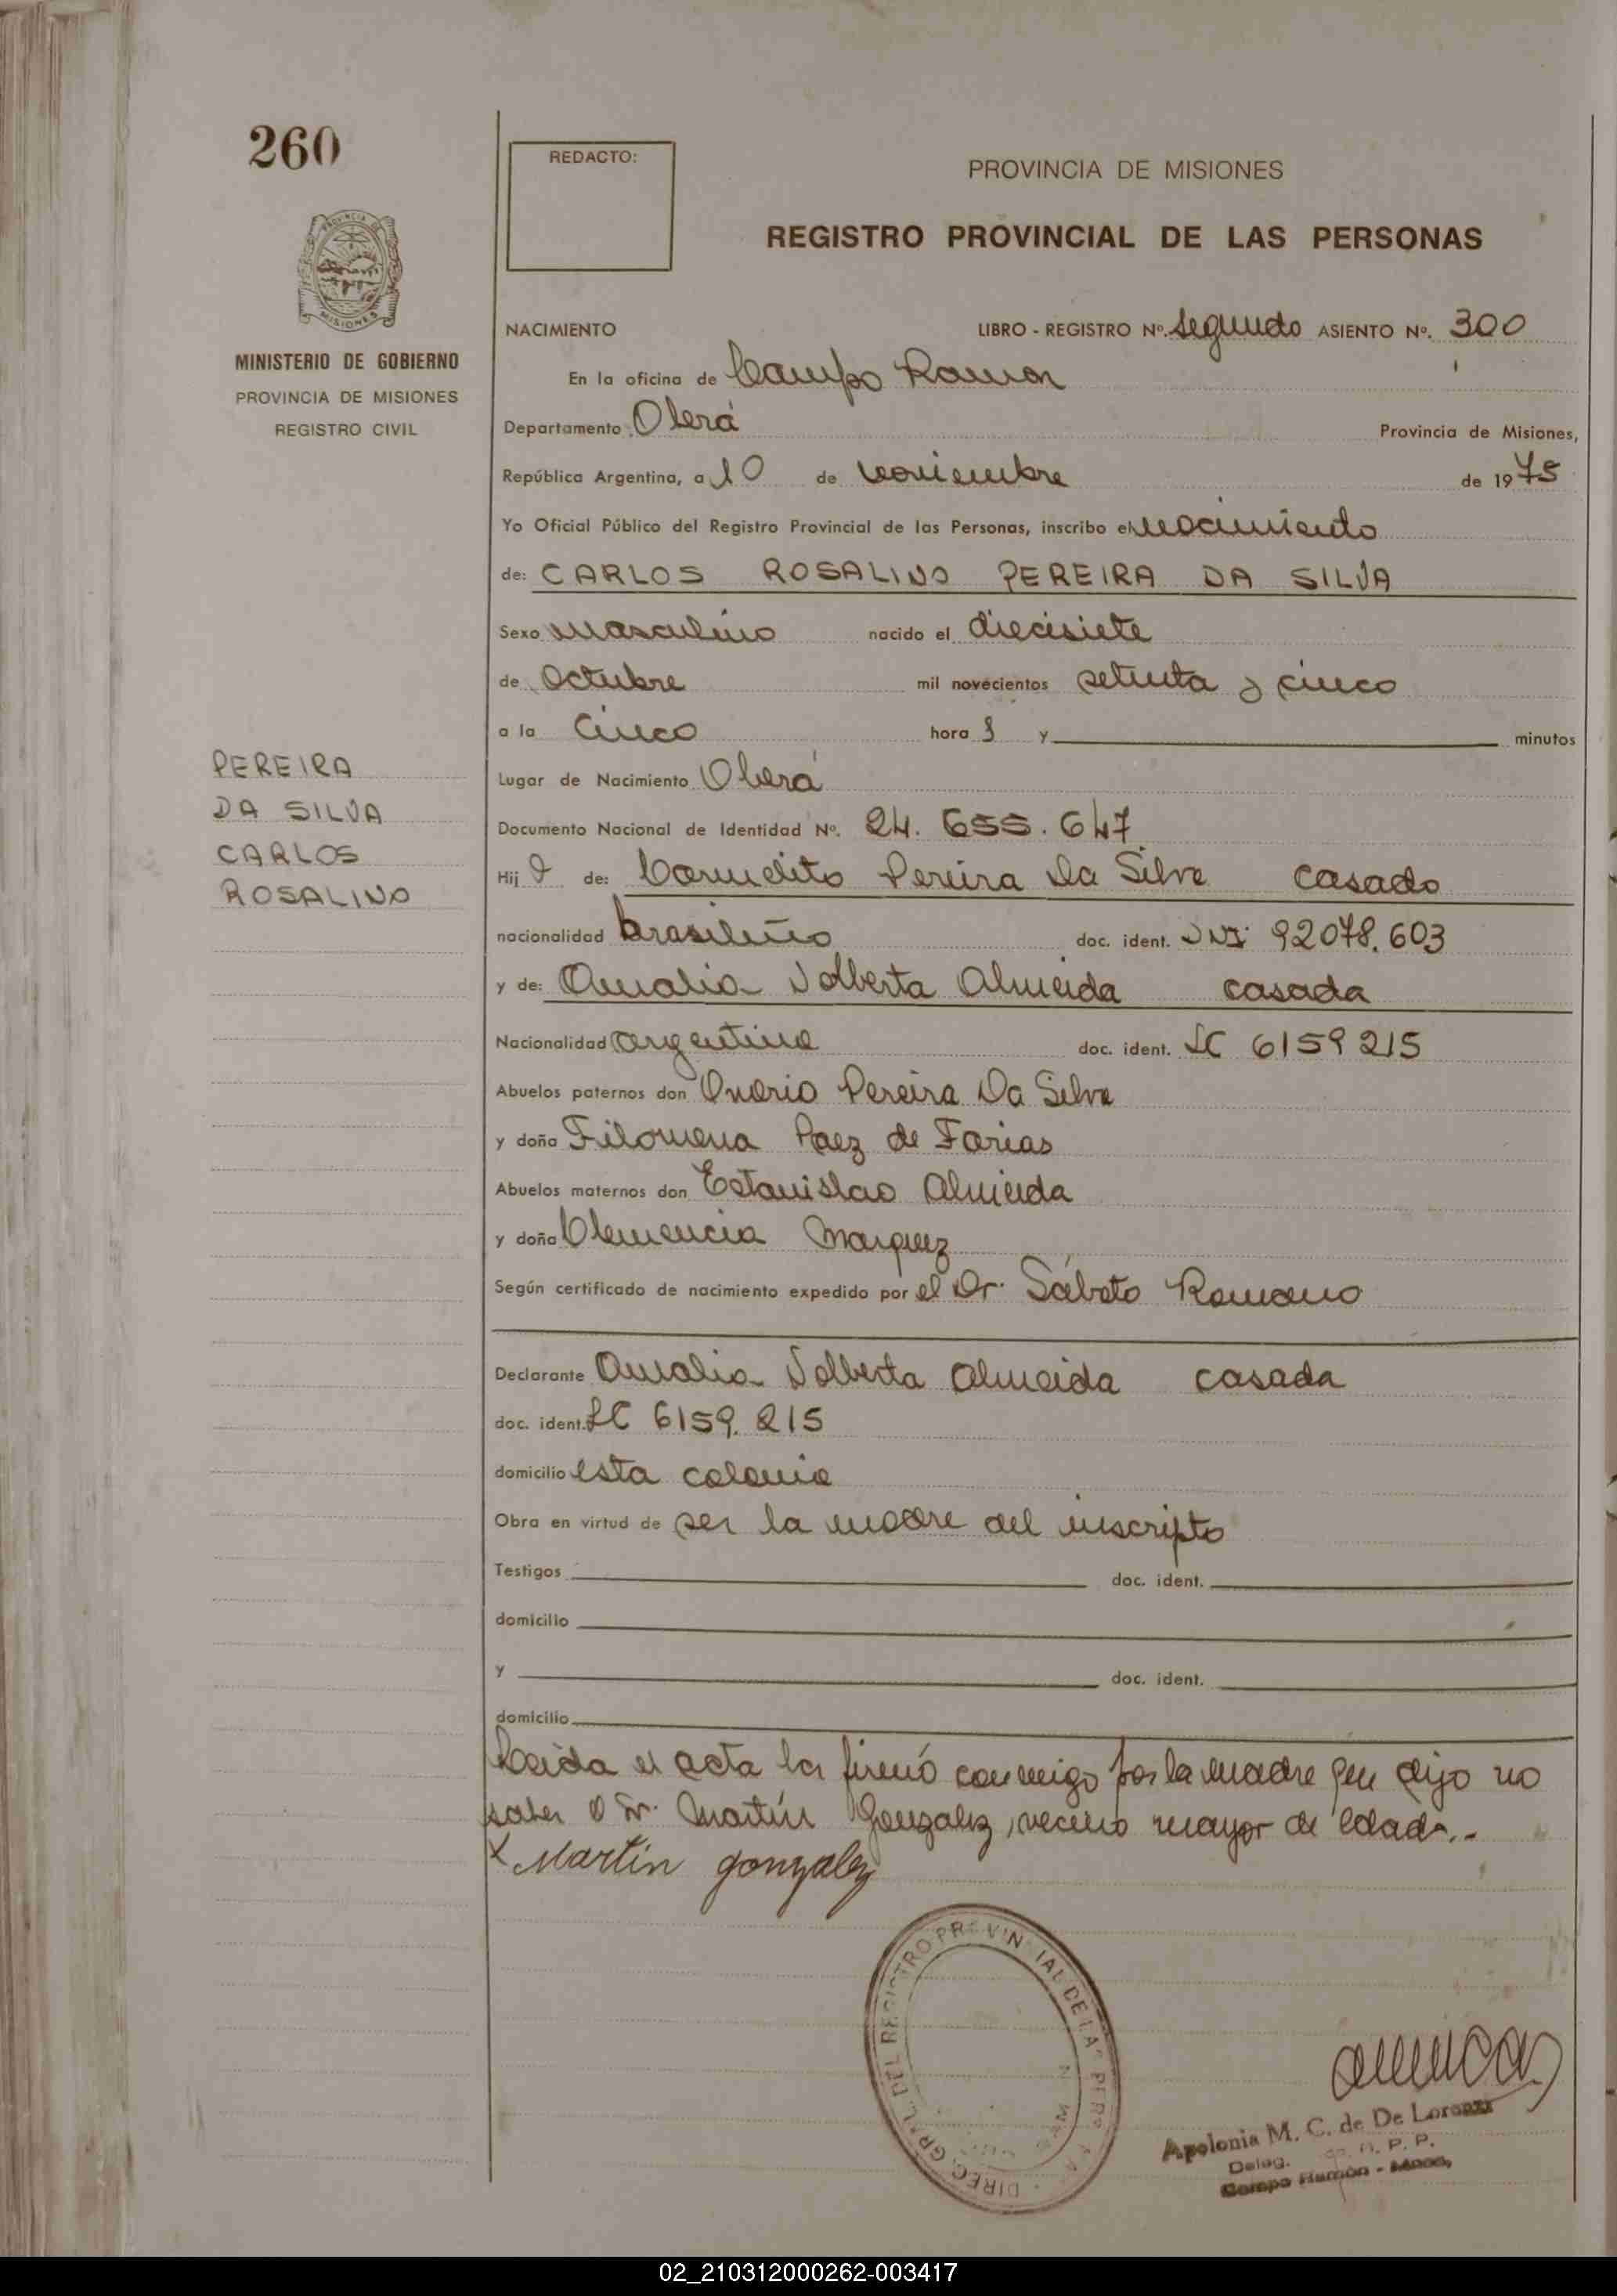 260
REDACTO:
PROVINCIA DE MISIONES
REGISTRO PROVINCIAL DE LAS PERSONAS
PROVINCIA
MISIONES
MINISTERIO DE GOBIERNO
PROVINCIA DE MISIONES
REGISTRO CIVIL
NACIMIENTO LIBRO - REGISTRO Nº. Segundo ASIENTO Nº. 300
En la oficina de Campo Ramon
Departamento Oberá Provincia de Misiones,
República Argentina, a 10 de noviembre de 1975
Yo Oficial Público del Registro Provincial de las Personas, inscribo el nacimiento
de: CARLOS ROSALINO PEREIRA DA SILVA
Sexo masculino nacido el diecisiete
de Octubre mil novecientos setenta y cinco
a la cinco hora s y minutos
PEREIRA
DA SILVA
CARLOS
ROSALINO
Lugar de Nacimiento Oberá
Documento Nacional de Identidad Nº. 24.655.647
Hij o de: Carmelito Pereira Da Silva casado
nacionalidad brasileño doc. ident. DNI 92078.603
y de: Amalia Dolberta Almeida casada
Nacionalidad argentina doc. ident. LC 6159215
Abuelos paternos don Onorio Pereira Da Silva
y doña Filomena Paez de Farias
Abuelos maternos don Estanislao Almeida
y doña Clemencia Marquez
Según certificado de nacimiento expedido por el Dr. Sábato Romano
Declarante Amalia Dolberta Almeida casada
doc. ident. LC 6159.215
domicilio esta colonia
Obra en virtud de ser la madre del inscripto
Testigos doc. ident.
domicilio
y doc. ident.
domicilio
Leida el acta la firmó conmigo por la madre que dijo no
saber el Sr. Martín Gonzalez, vecino mayor de edad.-
x Martín gonzalez
DIREC. GRAL. DEL REGISTRO PROVINCIAL DE LAS
Apolonia M. C. de De Lorenzi
Deleg. R. P. P.
Campo Ramón - Mnes.
02_210312000262-003417